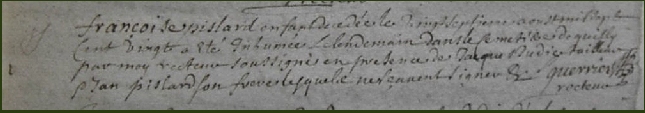 francoise pislard enfant decedée le vingt septiesme aoust mil sept
cent vingt a eté inhumée le lendemain dans le semetiere de quilly
par moy recteur soussignés en presence de Jacque tailleur
Jan pislard son frere lesquele ne scavent signer &c guerrier
recteur